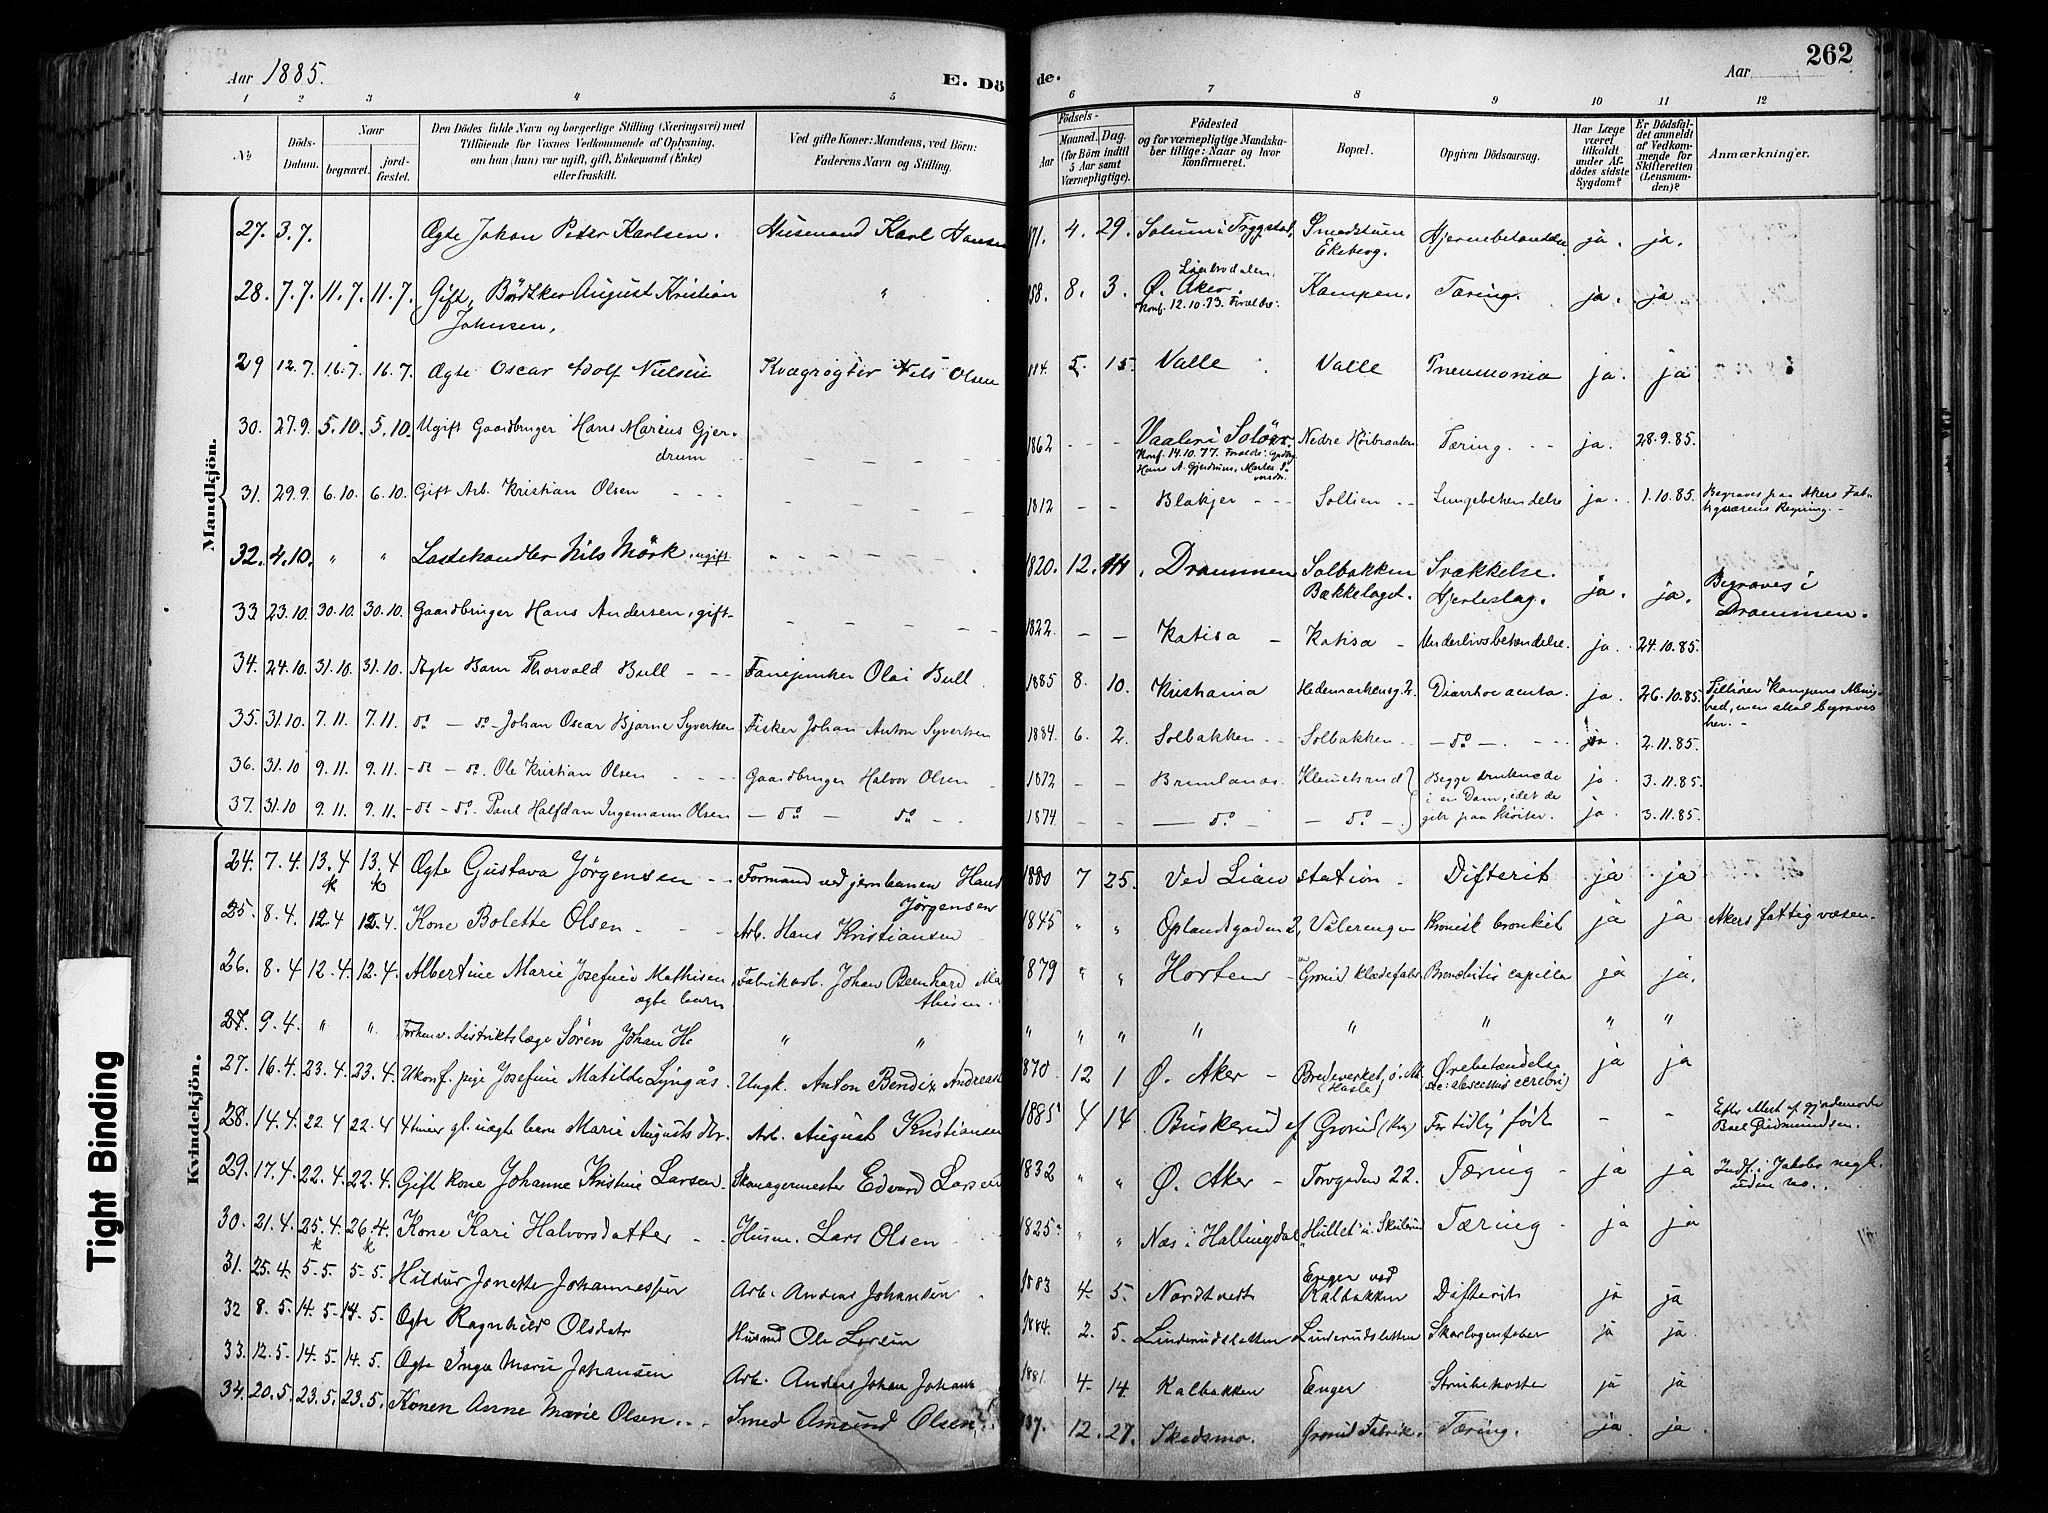 262
Aar 1885.
E. Dö
de.
Aar
1 2 3 4 5 6 7 8 9 10 11 12
No
Döds-Datum.
Naar
begravet.
jordfæstet.
Den Dödes fulde Navn og borgerlige Stilling (Næringsvei) med
Tilföiende for Voxnes Vedkommende af Oplysning,
om han (hun) var ugift, gift, Enkemand (Enke)
eller fraskilt.
Ved gifte Koner: Mandens, ved Börn:
Faderens Navn og Stilling.
Födsels-
Aar
Maaned.
Dag.
(for Börn indtil
5 Aar samt
Værnepligtige).
Födested
og for værnepligtige Mandska-
ber tillige: Naar og hvor
konfirmeret.
Bopæl.
Opgiven Dödsaarsag.
Har Læge
været
tilkaldt
under Af-
dödes sidste
Sygdom?
Er Dödsfal-
det anmeldt
af Vedkom-
mende for
Skifteretten
(Lensman-
den)?
Anmærkninger.
Mandkjön.
27. 3.7. Ægte Johan Peter Karlsen. Husmand Karl Hansen 71. 4. 29. Solum i Trygstad, Smedstuen Ekeberg. Hjernebetændelse ja. ja.
28. 7.7. 11.7. 11.7. Gift, Bödtker August Kristian Johnsen, " 58. 8. 3. Ø. Aker. Konf. 12.10.73. Kampen. Tæring. ja. ja.
29 12.7. 16.7. 16.7. Ægte Oscar Adolf Nielsen Kvægrøgter Nils Olsen 5. 15. Valle Valle Pneumonia ja. ja
30. 27.9. 5.10. 5.10. Ugift Gaardbruger Hans Marius Gjer-
drum 1862 - - Vaaler i Solör. Konf. 14.10.77. Hans A. Gjerdrum, Nedre Höibraaten Tæring. ja. 28.9.85.
31. 29.9. 6.10. 6.10. Gift Arb. Kristian Olsen 1812 - - Blakjer Soltien Lungebetændelse ja. 1.10.85. Begraves paa Akers Fat-
tigvæsens Regning.
32. 4.10. " " Lastehandler Nils Mörk, ugift 1820. 12. Drammen Solbakken Bækkelaget. Svækkelse. Hjerteslag. ja. ja. Begraves i
Drammen.
33. 23.10. 30.10. 30.10. Gaardbruger Hans Andersen, gift 1822. - - Katisa Katisa Underlivsbetændelse. ja. 24.10.85.
34. 24.10. 31.10. 31.10. Ægte Barn Thorvald Bull Fanejunker Olai Bull 1885 8. 10. Kristiania Hedemarkensg. 2. Diarrhoe acuta. ja. 26.10.85. Tilhører Kampens Menig-
hed, men skal begraves
her.
35. 31.10. 7.11. 7.11. do do Johan Oscar Bjarne Syvertsen Fisker Johan Anton Syvertsen 1884. 6. 2. Solbakken Solbakken do ja. 2.11.85.
36. 31.10 9.11. 9.11. do do. Ole Kristian Olsen Gaardbruger Halvor Olsen 1872 - - Brenlanas. Klemetsrud Begge druknede ja 3.11.85.
i en Dam, idet de
37. 31.10 9.11. 9.11. do do. Paul Halfdan Ingemann Olsen do do 1874 - - do do gik paa Skøiter. ja. 3.11.85.
Kvindekjön.
24. 7.4. 13.4 k 13.4 k Ægte Gustava Jørgensen Formand ved jernbanen Hans
Jørgensen 1880 7 25. Ved Lian station Difterit ja ja
25. 8.4. 12.4 12.4. Kone Bolette Olsen Arb. Hans Kristiansen 1845 " " Oplandsgaden 2, Vålerengen Kronisk bronkit ja ja Akers fattigvæsen.
26. 8.4 12.4. 12.4. Albertine Marie Josefine Mathisen, Fabrikarb. Johan Bernhard Ma
ægte barn thisen. 1879 " " Horten Grorud klædefabr. Bronchitis capillar ja ja.
27. 9.4. " " Forhenv. distriktslæge Sören Johan He " " " " " " " " " "
27. 16.4. 23.4. 23.4. Ukonf. pige Josefine Matilde Lyngås. Ungk. Anton Bendix Andreas 1870. 12 1 Ø. Aker Bredeverket, Ø. Ak (Hasle) Ørebetændelse (abscessus cerebri) ja ja
28. 14.4. 22.4 22.4 4 timer gl. uægte barn Marie Augusts dtr. Arb. August Kristiansen 1885 4 14 Buskerud af Grorud For tidlig født - - Efter Attest af gjordemoder
Boel Gudmundsen.
29. 17.4. 22.4. 22.4. Gift kone Johanne Kristine Larsen Skomagermester Edvard Larsen 1832 " " Ø. Aker Torvgaden 22. Tæring ja ja Indf. i Jakobs megh.
uden no.
30. 21.4. 25.4. k 26.4. k Kone Kari Halvorsdatter Husm. Lars Olsen 1825 " " Næs i Hallingdal Hullet u. Skilerud Tæring ja ja
31. 25.4. 5.5. 5.5. Hildur Jonette Johannessen Arb. Anders Johansen 1883 4. 5. Nordtvedt Enger ved Kalbakken Difterit ja ja
32 8.5. 14.5. 14.5. Ægte Ragnhild Olsdatr Husmd Ole Larsen 1884. 2. 5. Linderudsletten Linderudsletten Skarlagensfeber ja ja
33. 12.5. 14.5. 14.5. Ægte Inga Marie Johansen Arb. Anders Johan Johans 1881. 4. 14. Kalbakken Enger Strubehoste ja ja
34. 20.5. 23.5. 23.5. Konen Anne Marie Olsen. Smed Amund Olsen 12. 27. Skedsmo. Grorud Fabrik. Tæring. ja ja.
Tight Binding